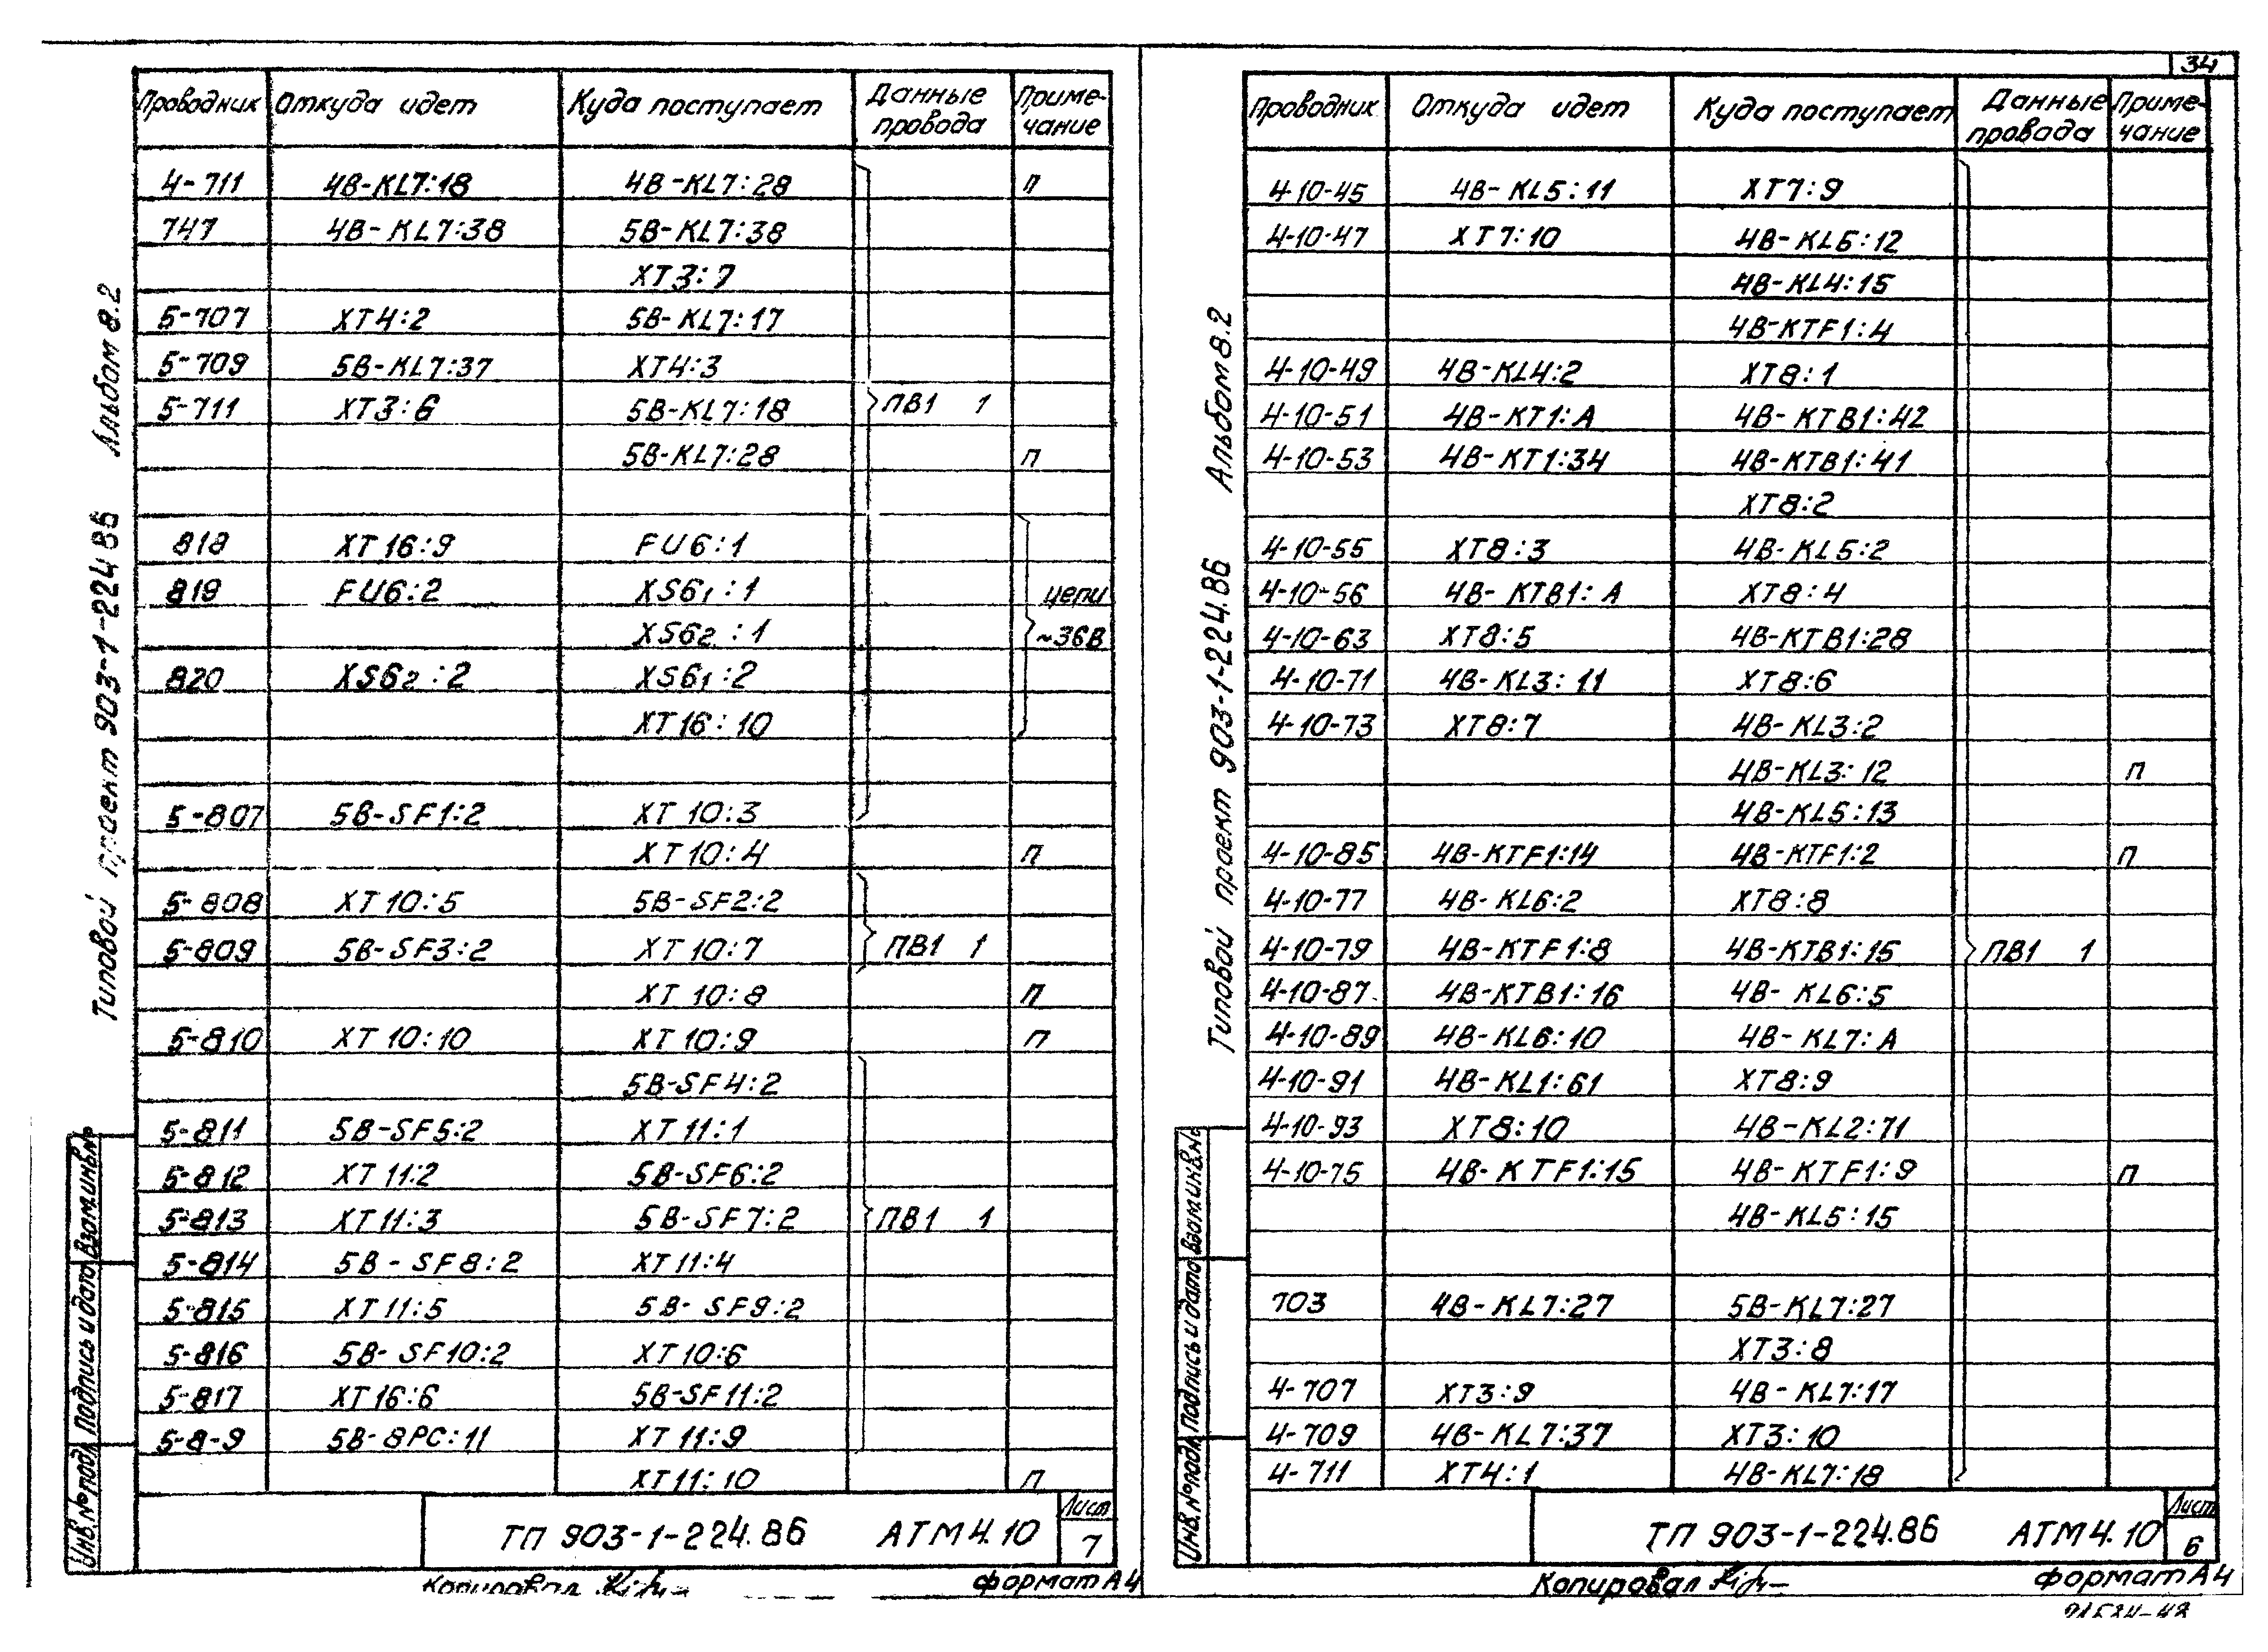 34
Проводник Откуда идет Куда поступает Данные провода Приме-чание
4-711 4В-KL7:18 4В-KL7:28 п
747 4В-KL7:38 5В-KL7:38
XT3:7
5-707 XT4:2 5В-KL7:17
5-709 5В-KL7:37 XT4:3
5-711 XT3:6 5В-KL7:18 ПВ1 1
5В-KL7:28 п
818 XT16:9 FU6:1
819 FU6:2 XS6₁:1 цепи
XS6₂:1 ~36В
820 XS6₂:2 XS6₁:2
XT16:10
5-807 5В-SF1:2 XT10:3
XT10:4 п
5-808 XT10:5 5В-SF2:2
5-809 5В-SF3:2 XT10:7 ПВ1 1
XT10:8 п
5-810 XT10:10 XT10:9 п
5В-SF4:2
5-811 5В-SF5:2 XT11:1
5-812 XT11:2 5В-SF6:2
5-813 XT11:3 5В-SF7:2 ПВ1 1
5-814 5В-SF8:2 XT11:4
5-815 XT11:5 5В-SF9:2
5-816 5В-SF10:2 XT10:6
5-817 XT16:6 5В-SF11:2
5-8-9 5В-8РС:11 XT11:9
XT11:10 п
ТП 903-1-224.86 АТМ4.10 Лист 7
Копировал
формат А4
Типовой проект 903-1-224 86 Альбом 8.2
Инв.№подл. Подпись и дата Взам.инв.№
Проводник Откуда идет Куда поступает Данные провада Приме-чание
4-10-45 4В-KL5:11 XT7:9
4-10-47 XT7:10 4В-KL5:12
4В-KL4:15
4В-KTF1:4
4-10-49 4В-KL4:2 XT8:1
4-10-51 4В-KT1:А 4В-KTВ1:42
4-10-53 4В-KT1:34 4В-KTВ1:41
XT8:2
4-10-55 XT8:3 4В-KL5:2
4-10-56 4В-KTВ1:А XT8:4
4-10-63 XT8:5 4В-KTВ1:28
4-10-71 4В-KL3:11 XT8:6
4-10-73 XT8:7 4В-KL3:2
4В-KL3:12 п
4В-KL5:13
4-10-85 4В-KTF1:14 4В-KTF1:2 п
4-10-77 4В-KL6:2 XT8:8
4-10-79 4В-KTF1:8 4В-KTВ1:15 ПВ1 1
4-10-87 4В-KTВ1:16 4В-KL6:5
4-10-89 4В-KL6:10 4В-KL7:А
4-10-91 4В-KL1:61 XT8:9
4-10-93 XT8:10 4В-KL2:71
4-10-75 4В-KTF1:15 4В-KTF1:9 п
4В-KL5:15
703 4В-KL7:27 5В-KL7:27
XT3:8
4-707 XT3:9 4В-KL7:17
4-709 4В-KL7:37 XT3:10
4-711 XT4:1 4В-KL7:18
ТП 903-1-224.86 АТМ4.10 Лист 6
Копировал
формат А4
Типовой проект 903-1-224.86 Альбом 8.2
Инв.№подл. Подпись и дата Взам.инв.№